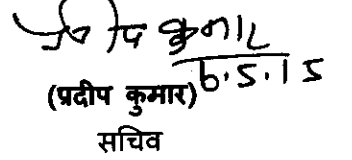 प्रदीप कुमार
6.5.15
(प्रदीप कुमार)
सचिव